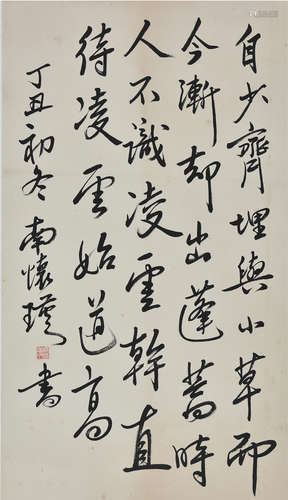 自少齊埋與小草而
今漸却出蓬蒿時
人不識凌雲幹直
待凌雲始道高
丁丑初冬南懷瑾書